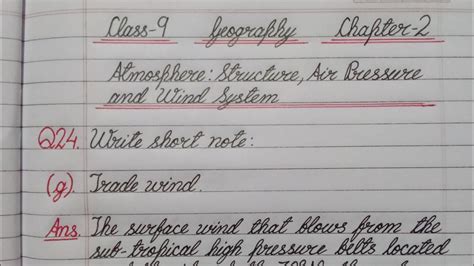 Class-9 Geography Chapter-2
Atmosphere: Structure, Air Pressure
and Wind System
Q24. Write short note:
(g). Trade wind.
Ans. The surface wind that blows from the
sub-tropical high pressure belts located